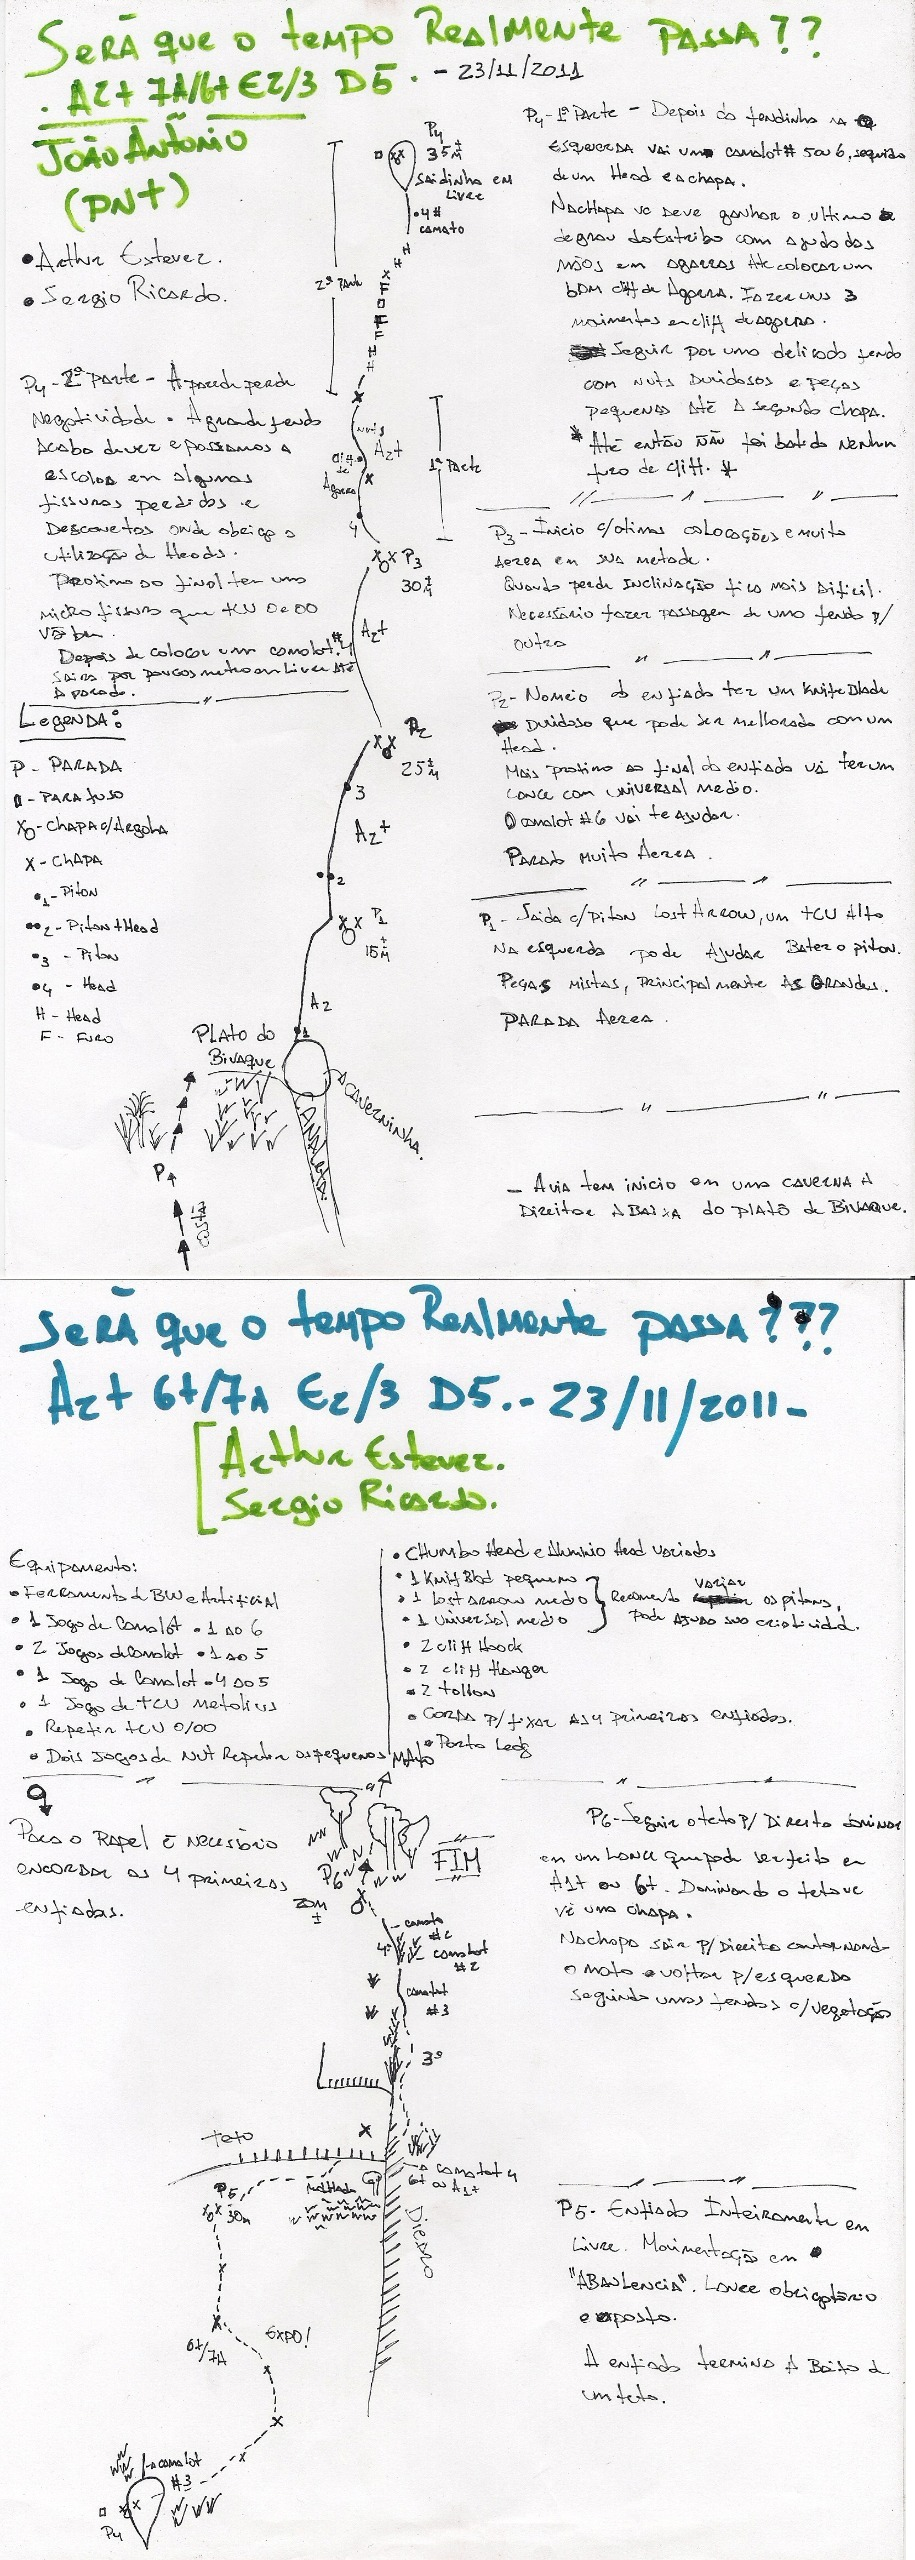 Será que o tempo Realmente PASSA??
. A2+ 7A/6+ E2/3 D5. - 23/11/2011
João Antônio
(PN+)
• Arthur Estevez.
• Sergio Ricardo.
P4 - 1ª Parte - Depois da fendinha na
esquerda vai um camalot # 5 ou 6, seguido
de um Head e a chapa.
Na chapa vc deve ganhar o ultimo
degrau do Estribo com ajuda das
mãos em agarras Até colocar um
bom cliff de Agarra. Fazer uns 3
movimentos em cliff de agarra.
Seguir por uma delicada fenda
com nuts Duvidosos e peças
pequenas Até A segunda chapa.
* Até então não foi batido Nenhum
furo de cliff. *
P4 - 2ª Parte - A parede perde
Negatividade. A grande fenda
Acaba de vez e passamos a
escalar em algumas
fissuras perdidas e
Desconertos onde obriga a
utilização de Heads.
Proximo ao final tem uma
micro fissura que TCU 0 e 00
Vão bem.
Depois de colocar um camalot #4
saira por poucos metros em Livre Até
A parada.
P4
35 ± M
Saidinha em
Livre
4#
camalo
H
H
X
F
O
H
F
F
H
H
2ª Parte
nuts
A2+
cliff
de
Agarra
1ª Parte
4
P3
30 ± M
A2+
P3 - Inicio c/otimas colocações e muito
Aerea em sua metade.
Quando perde Inclinação fica mais Dificil.
Necessário fazer passagem de uma fenda p/
outra
Legenda:
P - PARADA
PARAFUSO
XO - CHAPA c/Argola
X - CHAPA
•1 - Piton
••2 - Piton + Head
•3 - Piton
•4 - Head
H - Head
F - Furo
P2
25 ± M
3
A2+
2
P1
15 ± M
A2
1
P2 - No meio da enfiada tez um Knife Blade
Duvidoso que pode ser melhorado com um
Head.
Mais proximo ao final da enfiada vai ter um
Lance com universal medio.
O camalot #6 vai te Ajudar.
Parada Muito Aerea.
P1 - Saida c/ Piton Lost Arrow, um TCU Alto
Na esquerda pode Ajudar Bater o piton.
Peças mistas, principalmente As Grandes.
PARADA Aerea.
PLATO do
Bivaque
CAVERNINHA.
P4
- A via tem inicio em uma CAVERNA A
Direita e ABAIXA do PLATÔ de Bivaque.
Será que o tempo Realmente PASSA???
A2+ 6+/7A E2/3 D5. - 23/11/2011 -
Arthur Estevez.
Sergio Ricardo.
Equipamento:
• Ferramenta de BW e Artificial
• 1 Jogo de Camalot • 1 ao 6
• 2 Jogos de Camalot • 1 ao 5
• 1 Jogo de Camalot • 4 ao 5
• 1 Jogo de TCU Metolius
• Repetir TCU 0/00
• Dois Jogos de Nut Repetir os pequenos
• CHumbo Head e Aluminio Head variados
• 1 Knif Blad pequeno
• 1 Lost arrow medio
• 1 Universal medio
Recomento variar os pitons,
Pode Ajuda sua criatividad.
• 2 cliff Hoock
• 2 cliff Hanger
• 2 tallon
• Corda p/ fixar as 4 primeiras enfiadas.
• Porto Ledg
Mato
Para o Rapel é necessário
encordar as 4 primeiras
enfiadas.
FIM
P6
20m ±
camalo
#2
4º
camalot
#2
camalot
#3
3º
P6 - Seguir o teto p/ Direita dominar
em um Lance que pode ser feito em
A1+ ou 6+. Dominando o teto vc
vê uma chapa.
Na chapa sair p/ Direita contornando
o mato e voltar p/ esquerda
seguindo umas fendas c/ vegetação
Teto
camalot 4
6+ ou A1+
P5
30m
Diedro
EXPO!
6+/7A
P5 - Enfiada Inteiramente em
Livre. Movimentação em
"ABAULENCIA". Lance obrigatório
e exposto.
A enfiada termina A Baixo de
um teto.
camalot
#3
P4